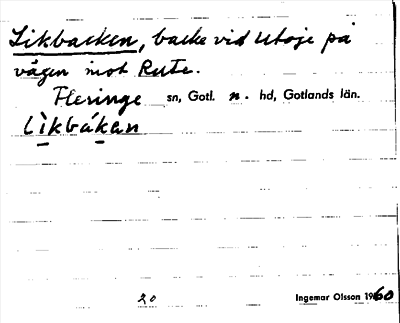 Likbacken, backe vid Utoje på
vägen mot Rute.
Fleringe sn, Gotl. n. hd, Gotlands län.
lìkbákan
20 Ingemar Olsson 1960